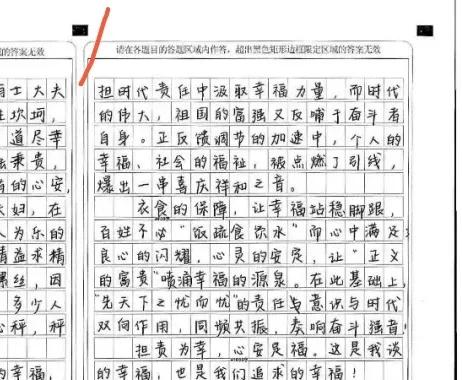 的答案无效
士大夫
生坎坷，
道尽幸
秉贵，
的心安，
夫妇，在
人为乐的
精益求精
螺丝，因
多少人
心秤，秤
的幸福，
请在各题目的答题区域内作答，超出黑色矩形边框限定区域的答案无效
担时代责任中汲取幸福力量，而时代
的伟大，祖国的富强又反哺于奋斗者
自身。正反馈调节的加速中，个人的
幸福、社会的福祉，被点燃了引线，
爆出一串喜庆祥和之音。
衣食的保障，让幸福站稳脚跟，
百姓不必“饭疏食饮水”而心中满足；
良心的闪耀，心灵的安定，让“正义
的富贵”喷涌幸福的源泉。在此基础上，
“先天下之忧而忧”的责任与意识与时代
双向作用，同频共振，奏响奋斗强音！
担责为幸，心安是福。这是我谈
的幸福，也是我们追求的幸福！